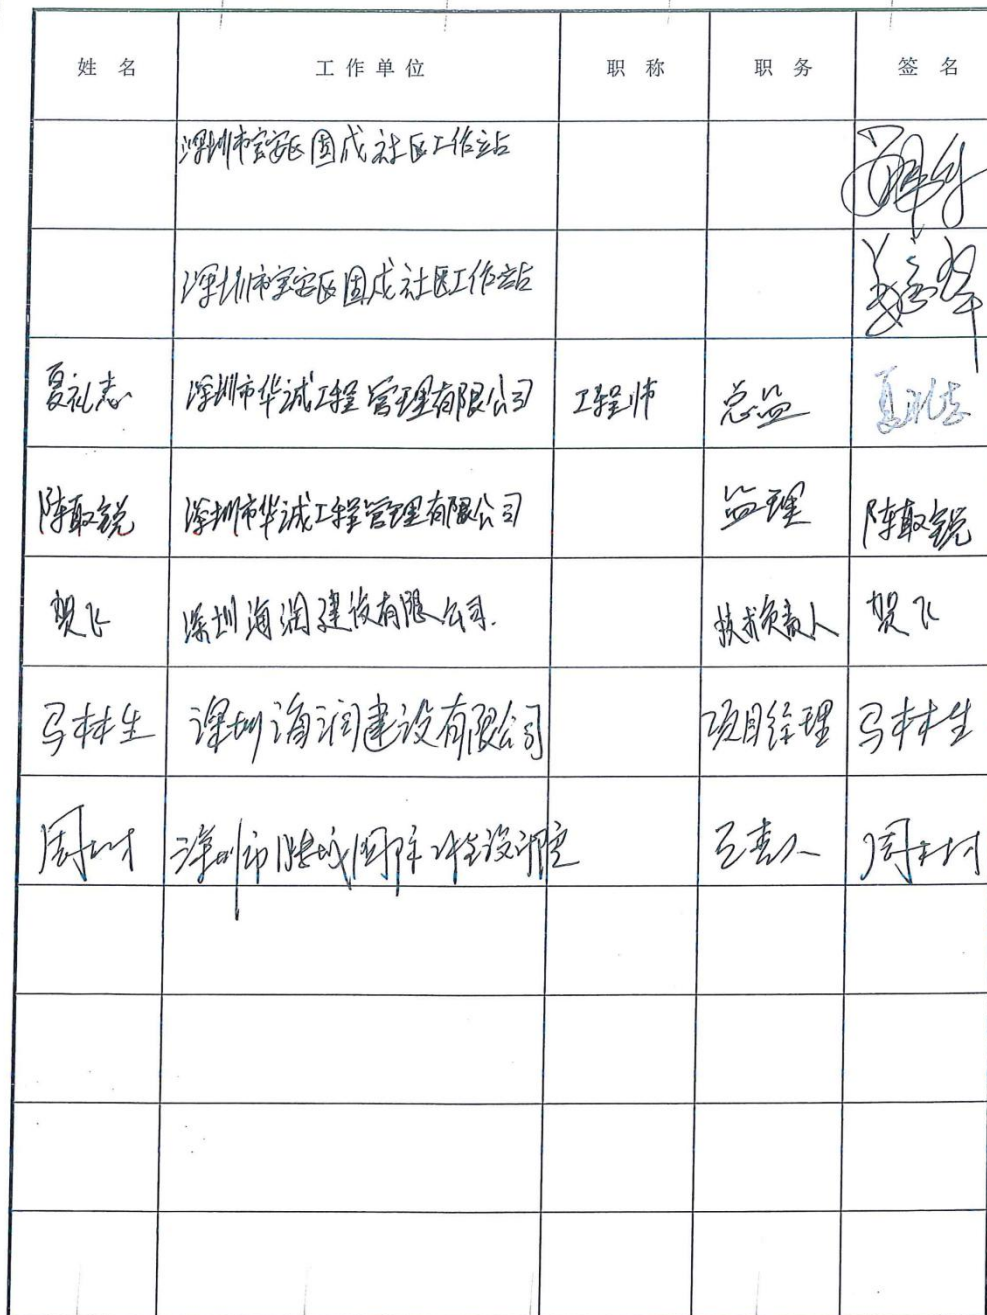 姓 名 工 作 单 位 职 称 职 务 签 名
深圳市宝安区固戍社区工作站
深圳市宝安区固戍社区工作站
夏礼志 深圳市华诚工程管理有限公司 工程师 总监 夏礼志
陈取锐 深圳市华诚工程管理有限公司 监理 陈取锐
贺飞 深圳海润建设有限公司. 技术负责人 贺飞
马林生 深圳海润建设有限公司 项目经理 马林生
周 深圳市 国际 设计院 周